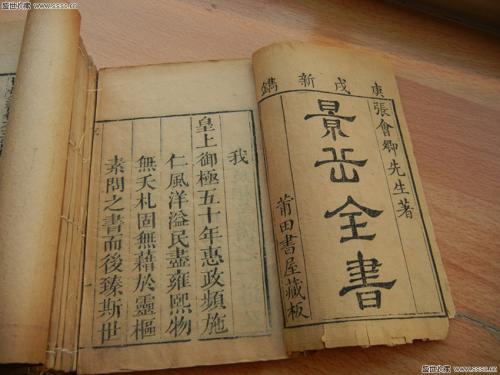 庚戌新鐫
張會卿先生著
景岳全書
莆田書屋藏板
我
皇上御極五十年惠政頻施
仁風洋溢民盡雍熙物
無夭札固無藉於靈樞
素問之書而後臻斯世
盛世收藏 www.sssc.cn
盛世收藏 www.sssc.cn
盛世收藏 www.sssc.cn
盛世收藏 www.sssc.cn